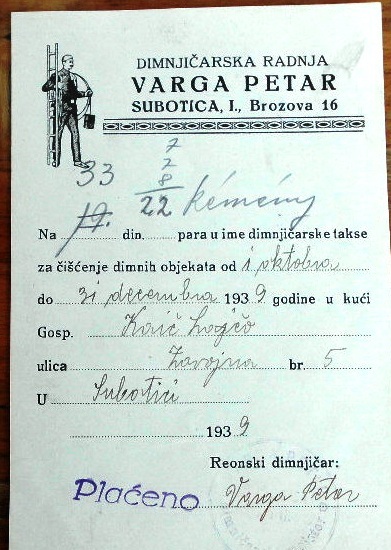 DIMNJIČARSKA RADNJA
VARGA PETAR
SUBOTICA, I., Brozova 16
7
7
8
33 22 kémény
Na 19. din. para u ime dimnjičarske takse
za čišćenje dimnih objekata od 1 oktobra
do 31 decembra 1939 godine u kući
Gosp. Kaič
ulica Zavojna br. 5
U Subotici
1939
Reonski dimnjičar:
Plaćeno Varga Petar